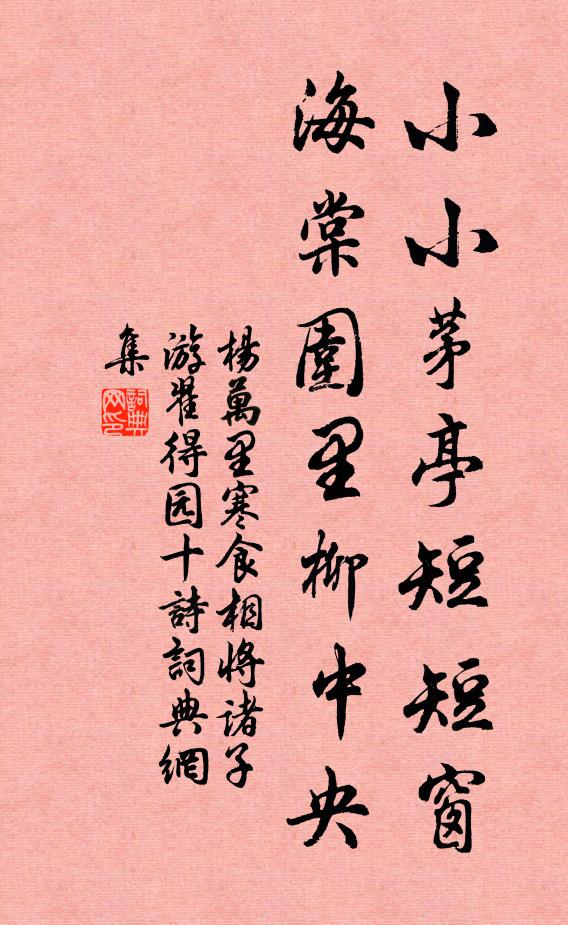 小小茅亭短短窗
海棠圍里柳中央
楊萬里寒食相將諸子
游翟得园十詩詞典網
集
詞典网印